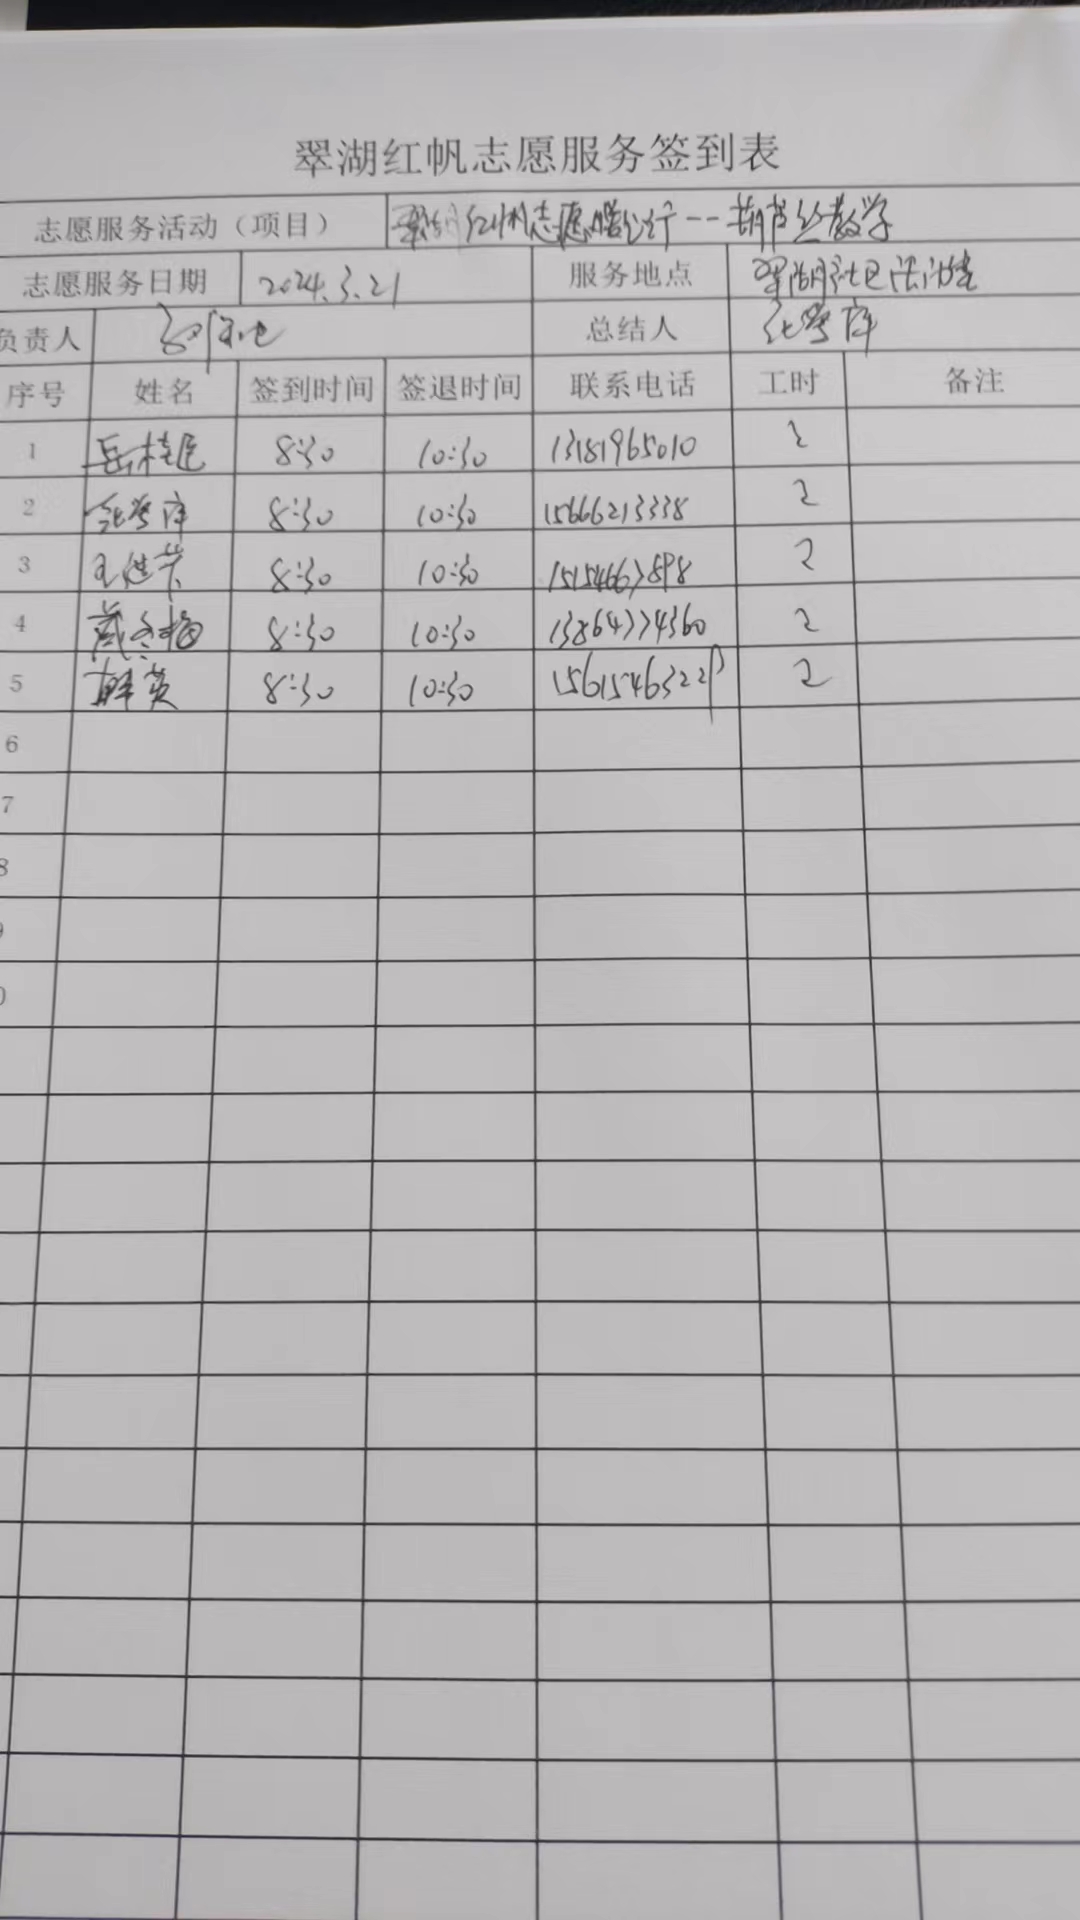 翠湖红帆志愿服务签到表
志愿服务活动（项目） 翠湖红帆志愿暖心行--葫芦丝教学
志愿服务日期 2024.3.21 服务地点 翠湖社区活动室
负责人 总结人
序号 姓名 签到时间 签退时间 联系电话 工时 备注
1 岳桂 8:30 10:30 13181965010 2
2 8:30 10:30 15666213338 2
3 王 8:30 10:30 15154667898 2
4 冬梅 8:30 10:30 13864774360 2
5 韩英 8:30 10:30 2
6
7
8
9
0